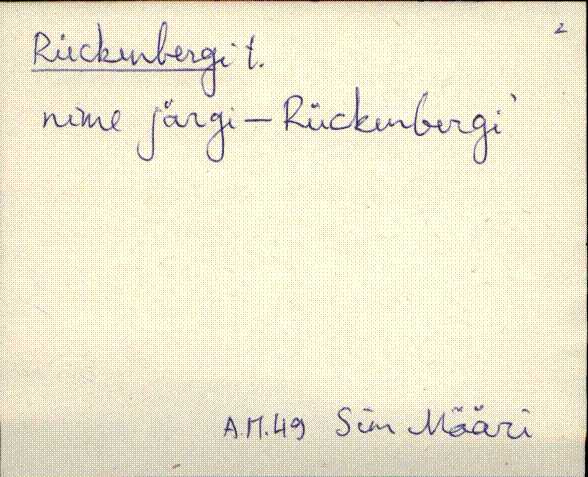 2
Rückenbergi t.
nime järgi – Rückenbergi
A.M.49 Sim Määri